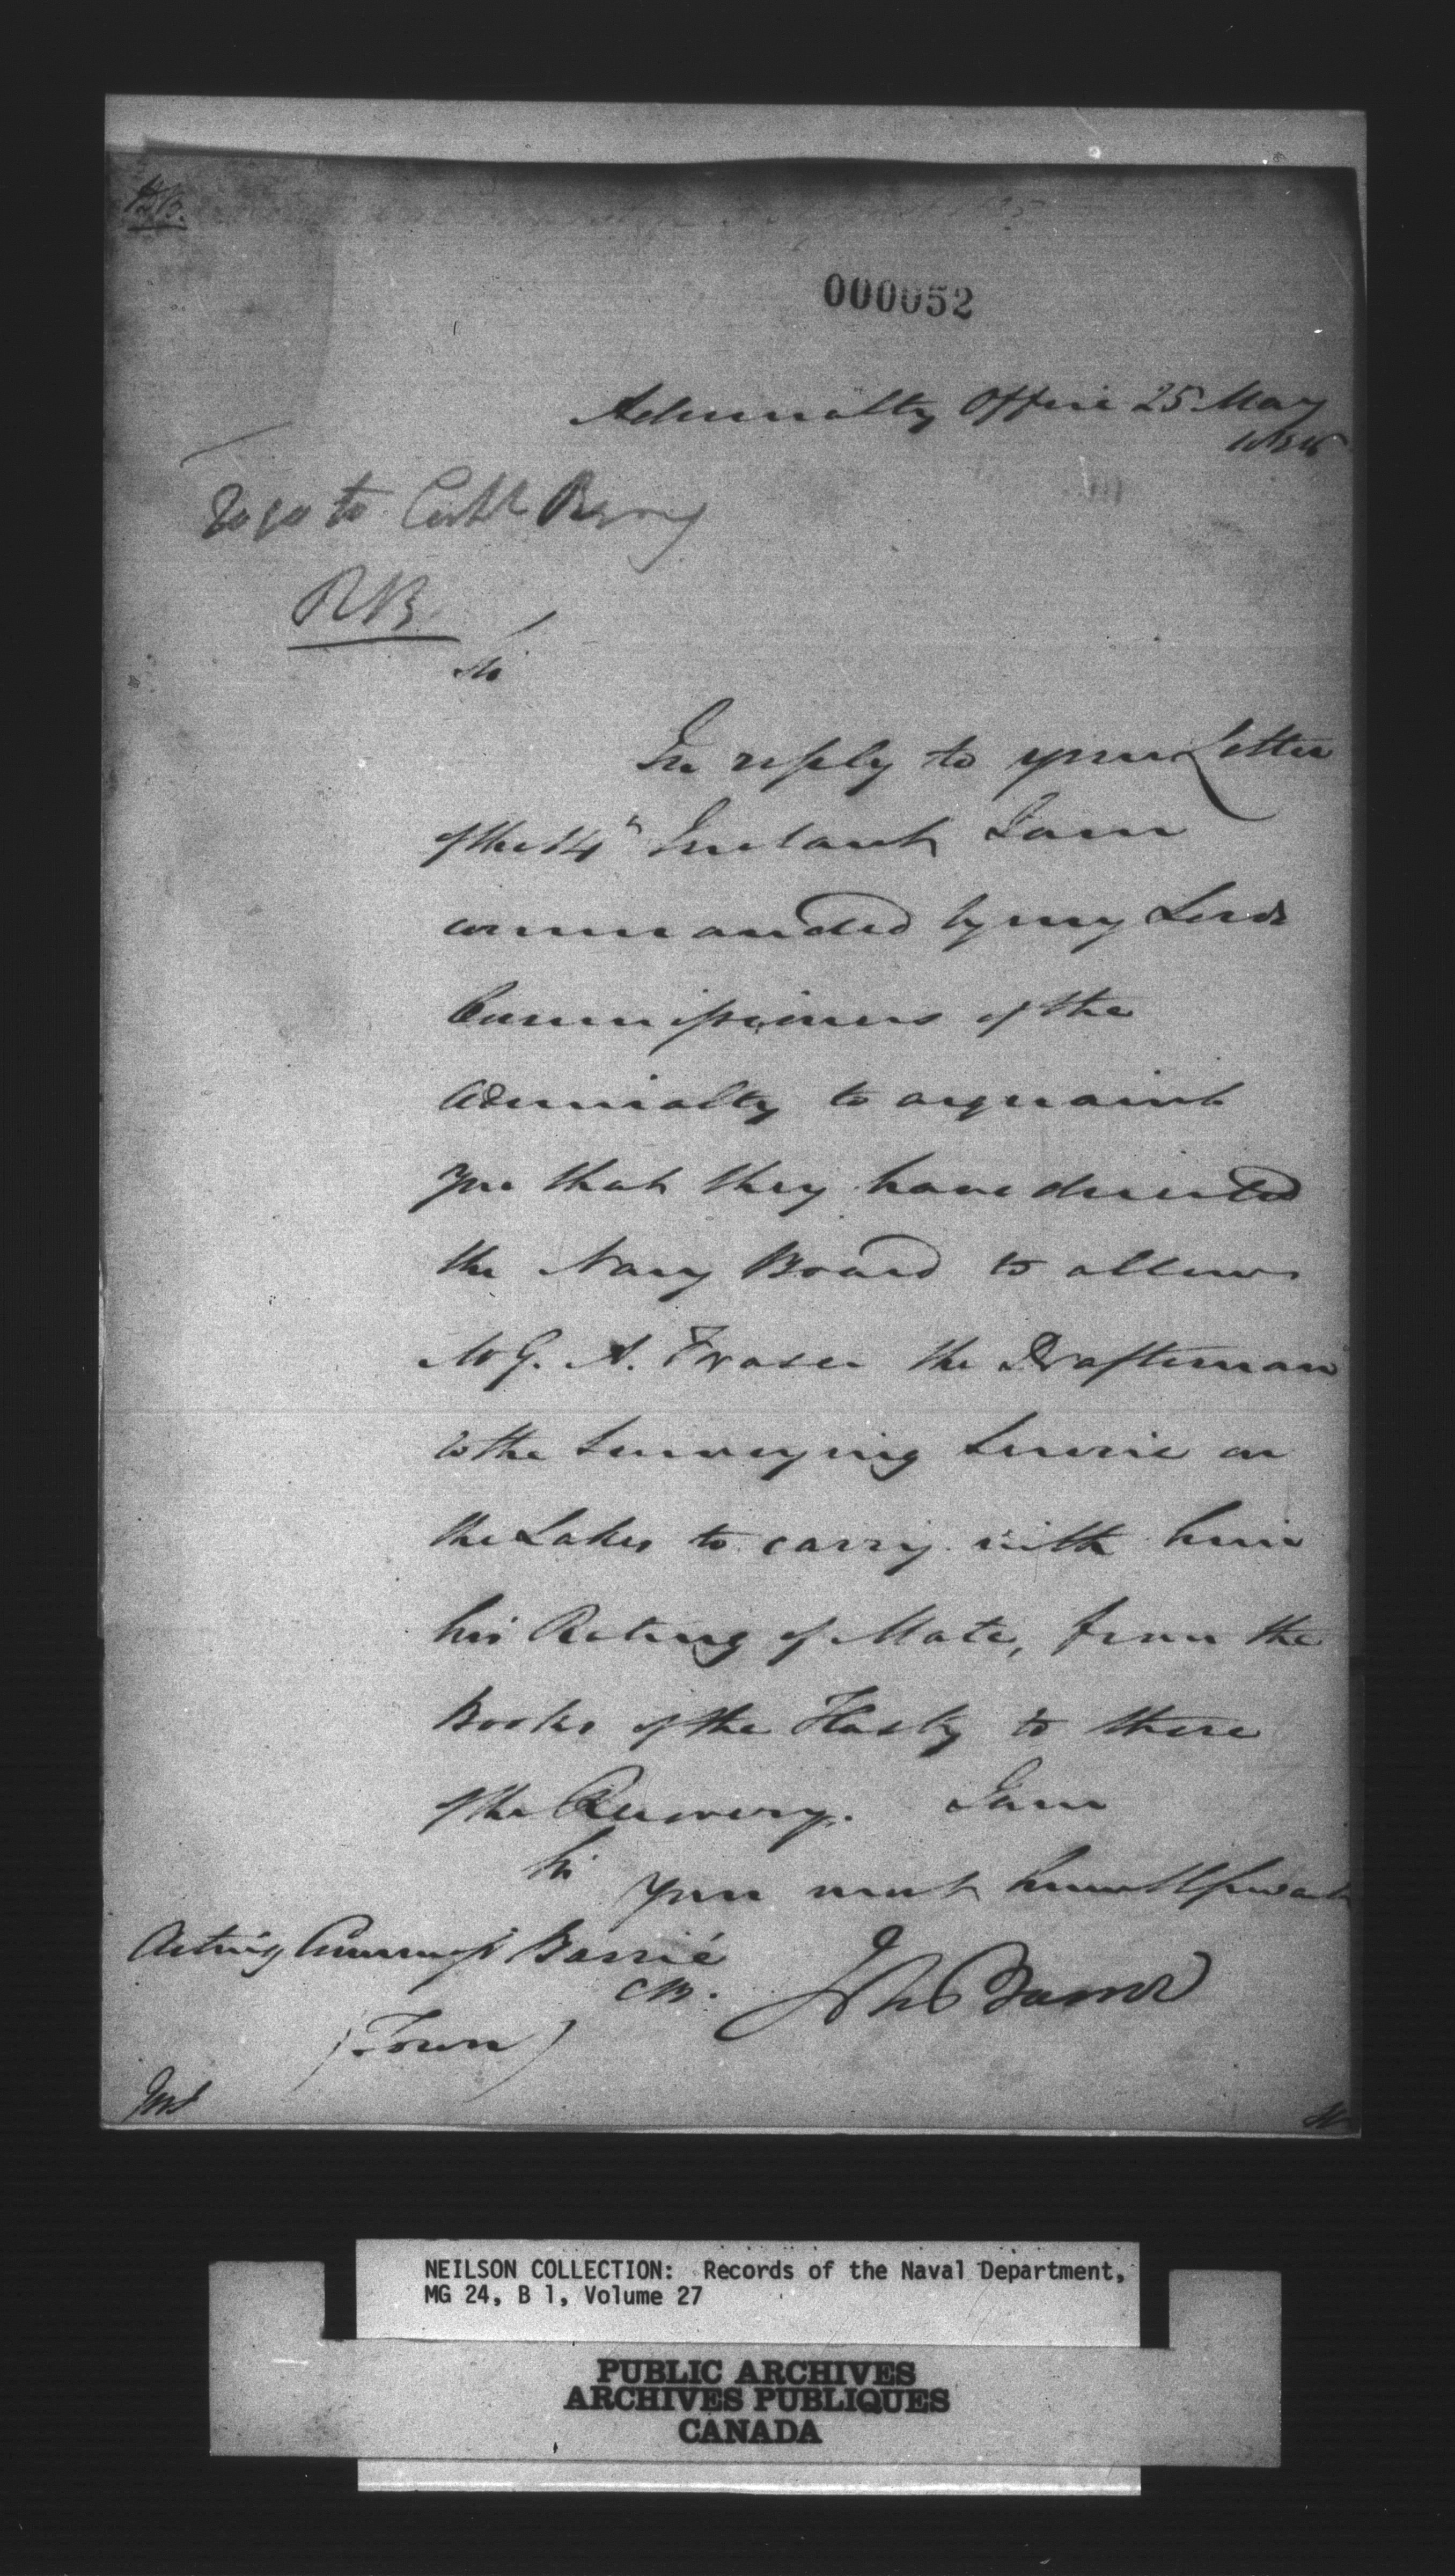 000052
Admiralty Office 25 May
To go to Captn
RB.
Sir
In reply to your Letter
of the 14th Instant I am
commanded by my Lords
Commissioners of the
Admiralty to acquaint
you that they have directed
the Navy Board to allow
Mr G. A. Frazer the Draftsman
to the Surveying Service on
the Lakes to carry with him
his Rating of Mate, from the
Books of the Hasty to those
of the Recovery. I am
Sir
Your most humble Servant
Acting Commissr Barrie
CB.
Jno Barrow
(Town)
NEILSON COLLECTION: Records of the Naval Department,
MG 24, B 1, Volume 27
PUBLIC ARCHIVES
ARCHIVES PUBLIQUES
CANADA